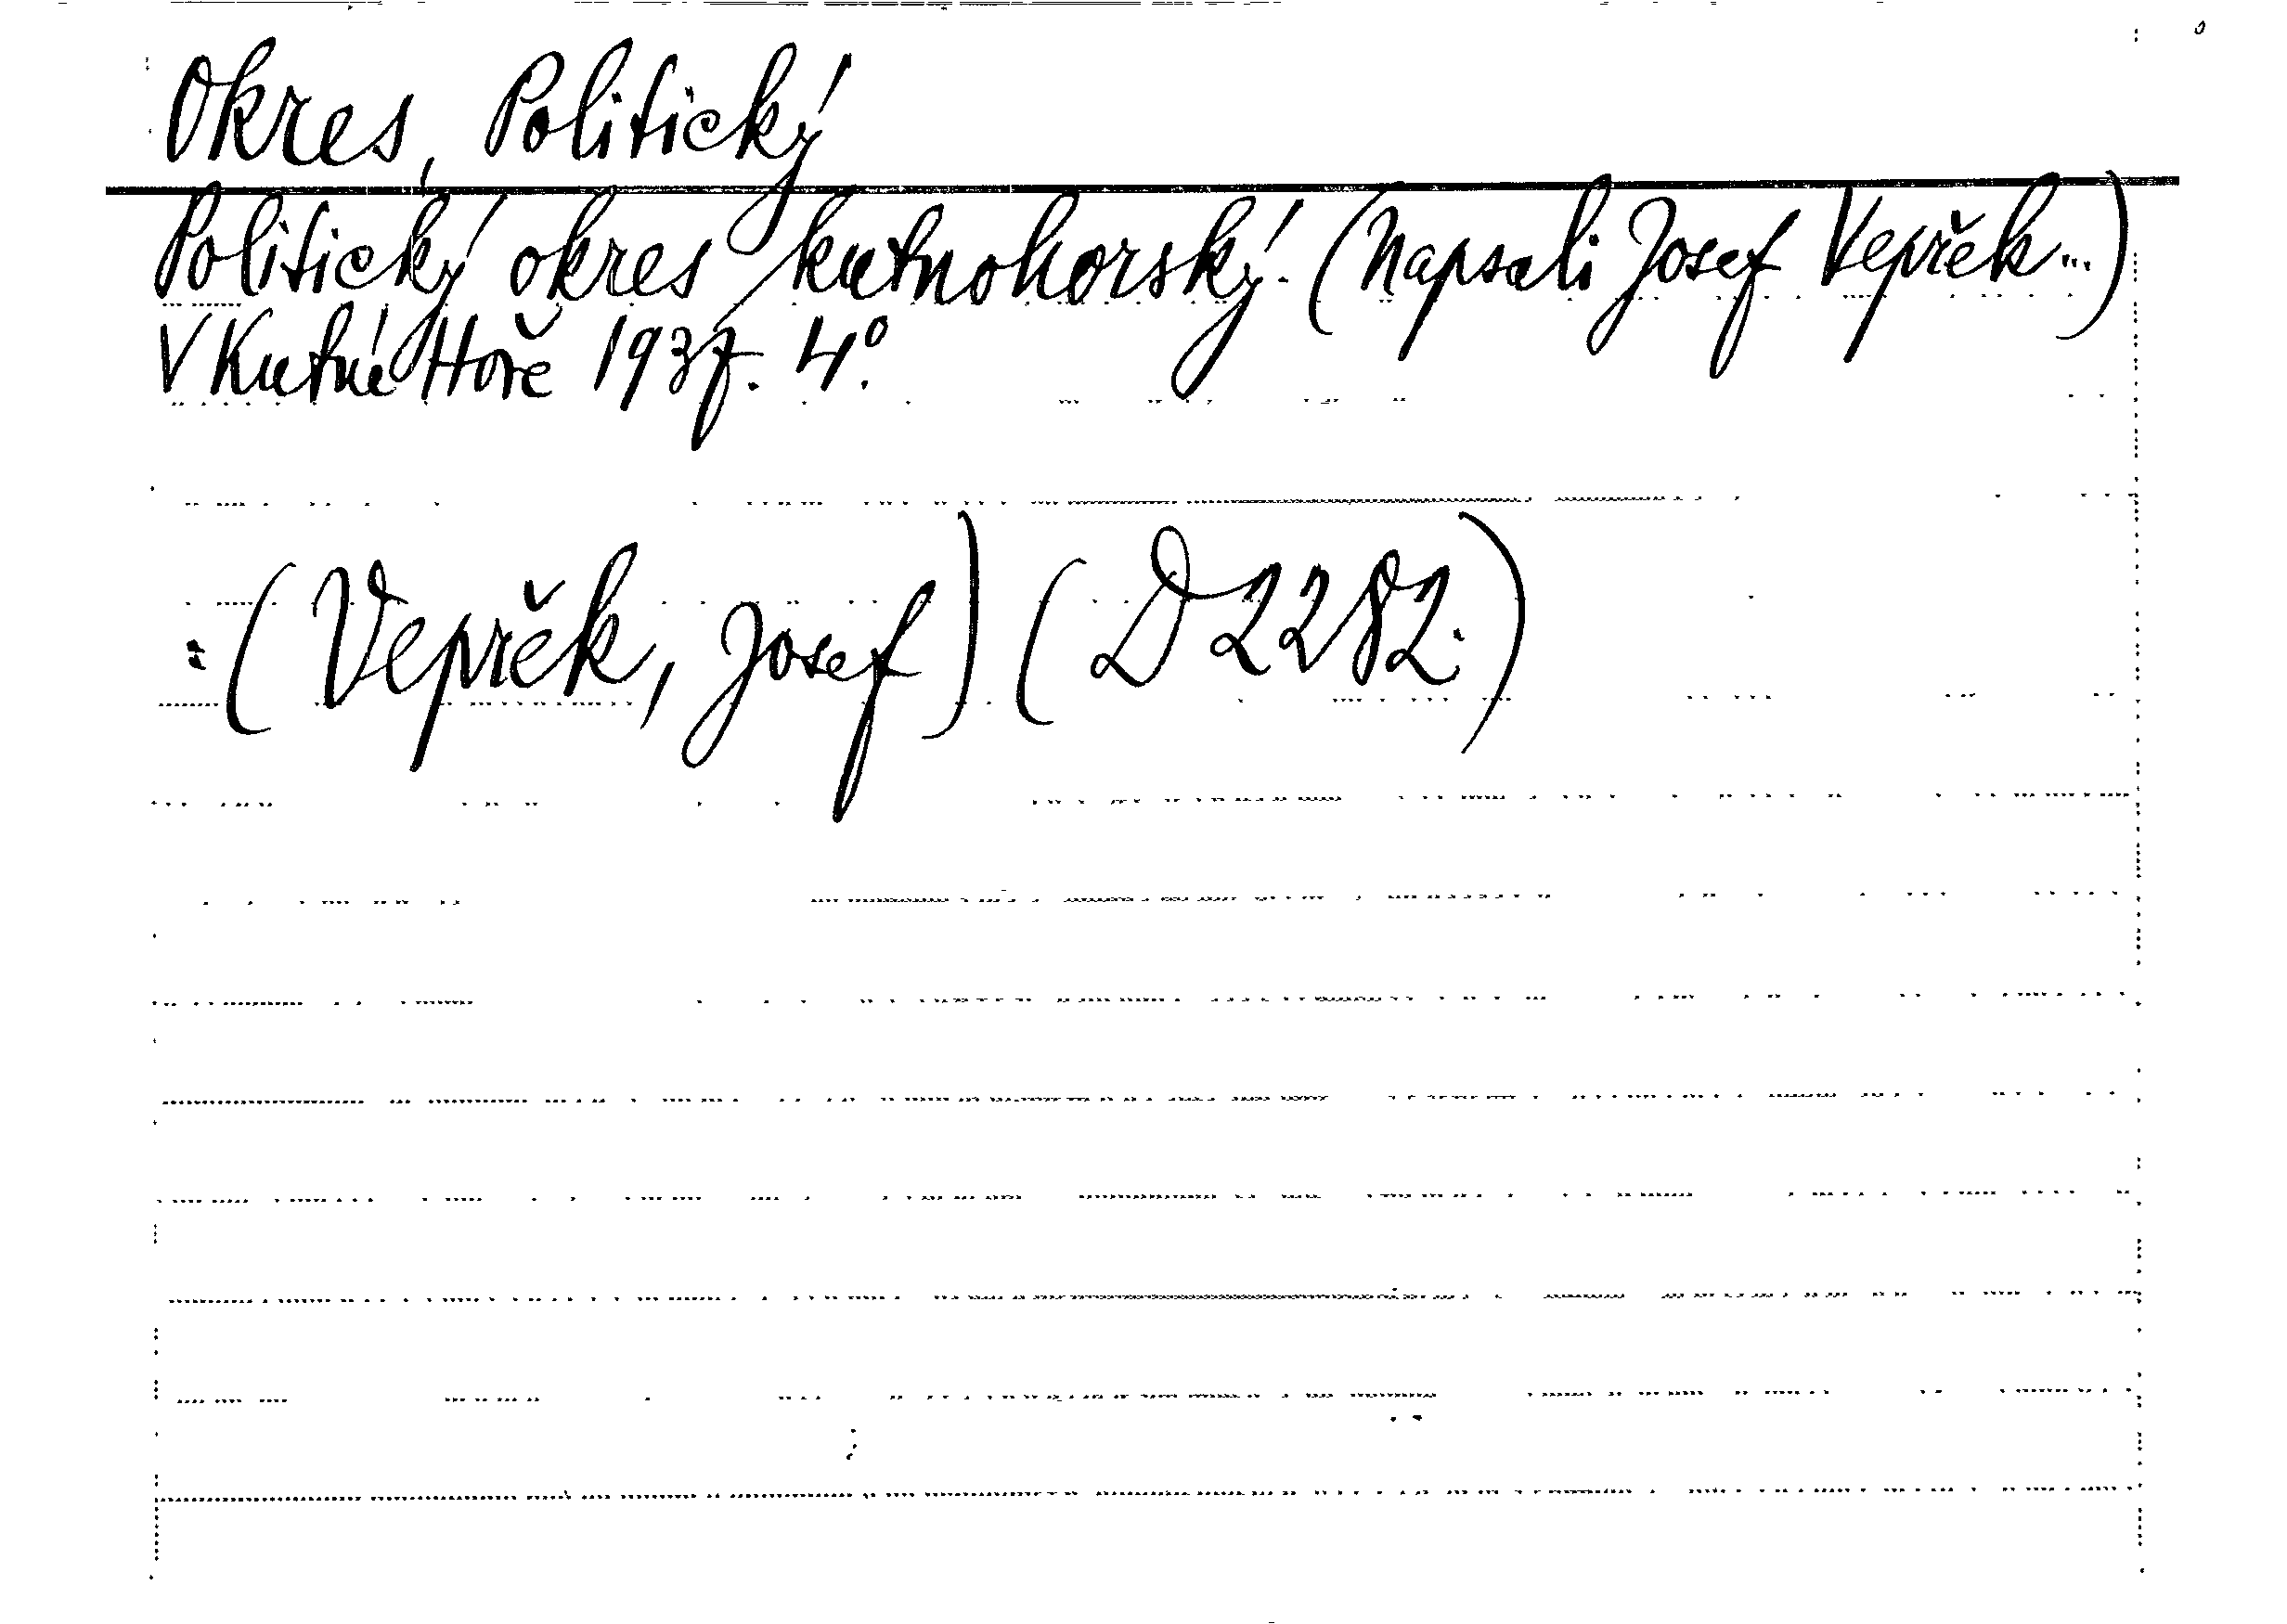 Okres, Politický
Politický okres kutnohorský. (Napsali Josef Vepřek...)
V Kutné Hoře 1937. 4°.
: (Vepřek, Josef) (D 2282.)